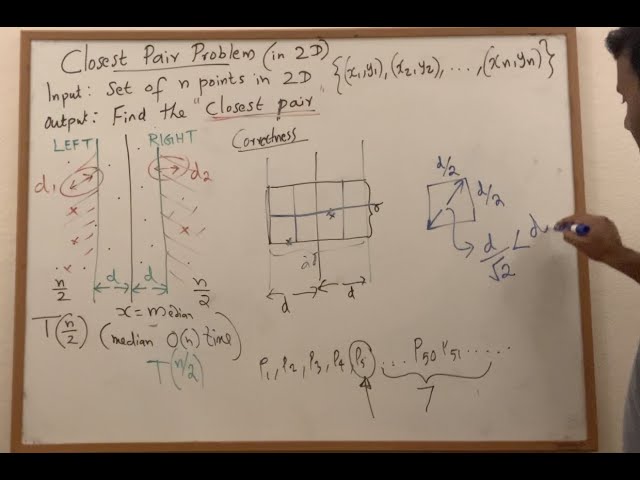 Closest Pair Problem (in 2D)
Input: Set of n points in 2D {(x1,y1), (x2,y2), ..., (xn,yn)}
Output: Find the "Closest pair"
LEFT RIGHT
Correctness
d1 d2
d d
n/2 n/2
x = median
T(n/2) (median O(n) time)
T(n/2)
d
d d
d/2
d/2
d/√2 < d
P1, P2, P3, P4, P5 ... P50 P51 ......
7